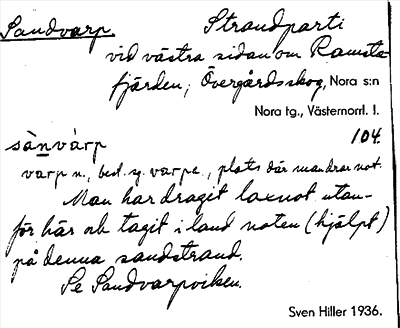 Sandvarp. Strandparti
vid västra sidan om Ramsta-
fjärden, Övergårdsskog, Nora s:n
Nora tg., Västernorrl. l.
104.
sànvàrp
varp n., best. sg. varpe, plats där man drar not.
Man har dragit laxnot utan-
för här och tagit i land noten (hjälpt)
på denna sandstrand.
Se Sandvarpviken.
Sven Hiller 1936.